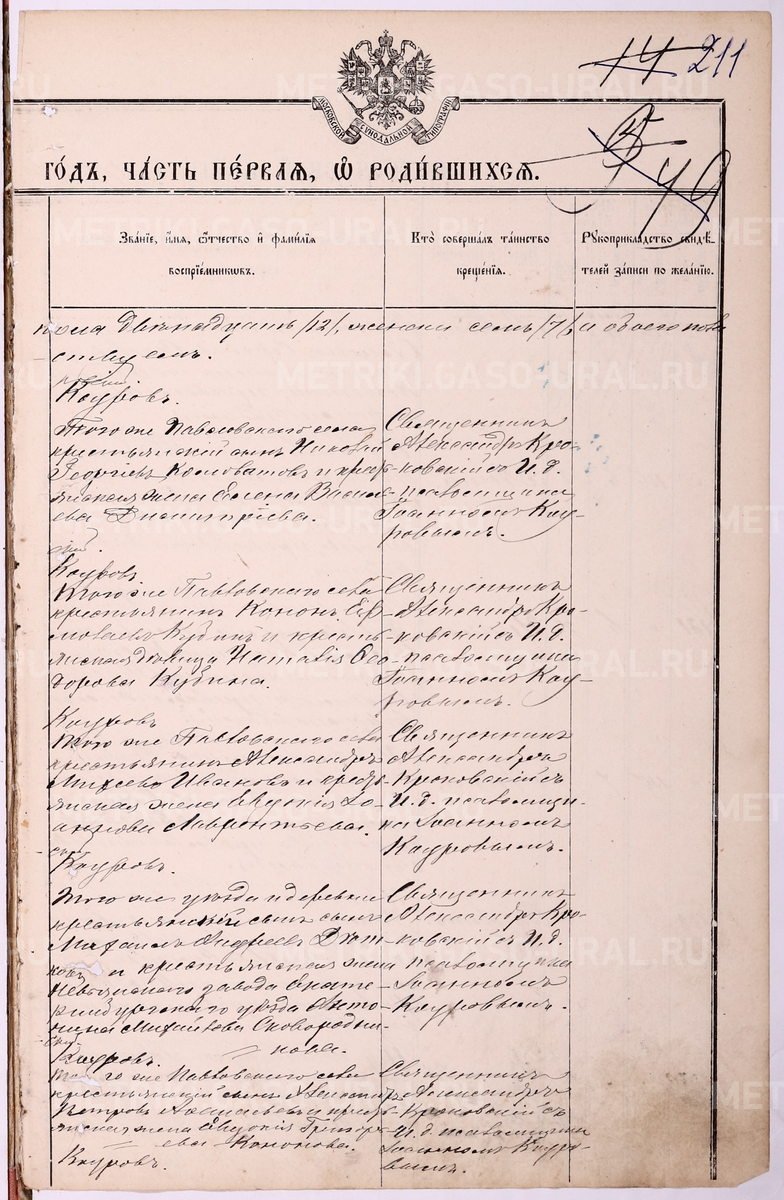 14 211
МОСКОВСКОЙ СѴНОДАЛЬНОЙ ТИПОГРАФІИ
49
ГО́ДЪ, ЧА́СТЬ ПЕ́РВАЯ, Ѡ҆ РОДИ́ВШИХСЯ.
Зва́нїе, и҆́мя, ѻ҆́тчество и҆ фами́лїѧ воспрїе́мникѡвъ.
Кто̀ соверша́лъ та́инство креще́нїѧ.
Рꙋкоприкла́дство свидѣ́телей за́писи по жела́нїю.
пола двѣнадцать /12/, женска семь /7/ и обоего пола
Кауровъ.
Того же Павловскаго села
крестьянскій сынъ Николай
Георгіевъ и крестьянская жена Елена Василь
ева Димитріева.
Священникъ
Александръ Кро
ковскій съ И. д.
псаломщика
Іоанномъ Кау
ровымъ.
Кауровъ
Того же Павловскаго села
крестьянинъ Кононъ
Кубинъ и кресть
янская дѣвица Наталія Ѳео
дорова Кубина.
Священникъ
Александръ Кро
ковскій съ И. д.
псаломщика
Іоанномъ Кау
ровымъ.
Кауровъ
Того же Павловскаго села
крестьянинъ Александръ
Ивановъ и кресть
янская жена Евдокія
Лаврентьева.
Священникъ
Александръ
Кроковскій съ
И. д. псаломщи
ка Іоанномъ
Кауровымъ.
Кауровъ.
Того же уѣзда и деревни
крестьянскій сынъ
Михаилъ Андреевъ
и крестьянская жена
Невьянскаго завода Екате
ринбургскаго уѣзда Анто
нина Сковородни
кова.
Священникъ
Александръ Кро
ковскій съ И. д.
псаломщика
Іоанномъ
Кауровымъ.
Кауровъ.
Того же Павловскаго села
крестьянскій сынъ Александръ
Петровъ и кресть
янская жена Евдокія Григорь
ева Кононова.
Священникъ
Александръ
Кроковскій съ
И. д. псаломщика
Іоанномъ Кауро
вымъ.
Кауровъ.
METRIKI.GASO-URAL.RU